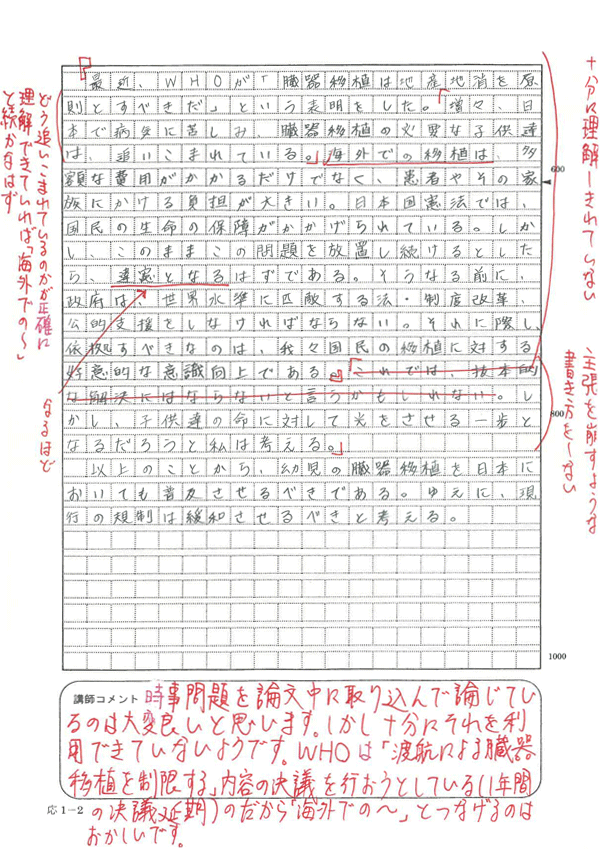 最近、WHOが「臓器移植は地産地消を原
則とすべきだ」という表明をした。「増々、日
本で病気に苦しみ、臓器移植の必要な子供達
は、追いこまれている。」海外での移植は、多
額な費用がかかるだけでなく、患者やその家
族にかける負担が大きい。日本国憲法では、
国民の生命の保障がかかげられている。しか
し、このままこの問題を放置し続けるとした
ら、違憲となるはずである。そうなる前に、
政府は、世界水準に匹敵する法・制度改革、
公的支援をしなければならない。それに際し、
依拠すべきなのは、我々国民の移植に対する
好意的な意識向上である。」「これでは、抜本的
な解決にはならないと言うかもしれない。し
かし、子供達の命に対して光をさせる一歩と
なるだろうと私は考える。」
以上のことから、幼児の臓器移植を日本に
おいても普及させるべきである。ゆえに、現
行の規制は緩和させるべきと考える。
600
800
1000
十分に理解しきれていない
主張を崩すような
書き方をしない
どう追いこまれているのかが正確に
理解できていれば「海外での〜」
と続かないはず
なるほど
講師コメント
時事問題を論文中に取り込んで論じてい
るのは大変良いと思います。しかし十分にそれを利
用できていないようです。WHOは「渡航による臓器
移植を制限する」内容の決議を行おうとしている(1年間
の決議延期)のだから「海外での〜」とつなげるのは
おかしいです。
応1-2